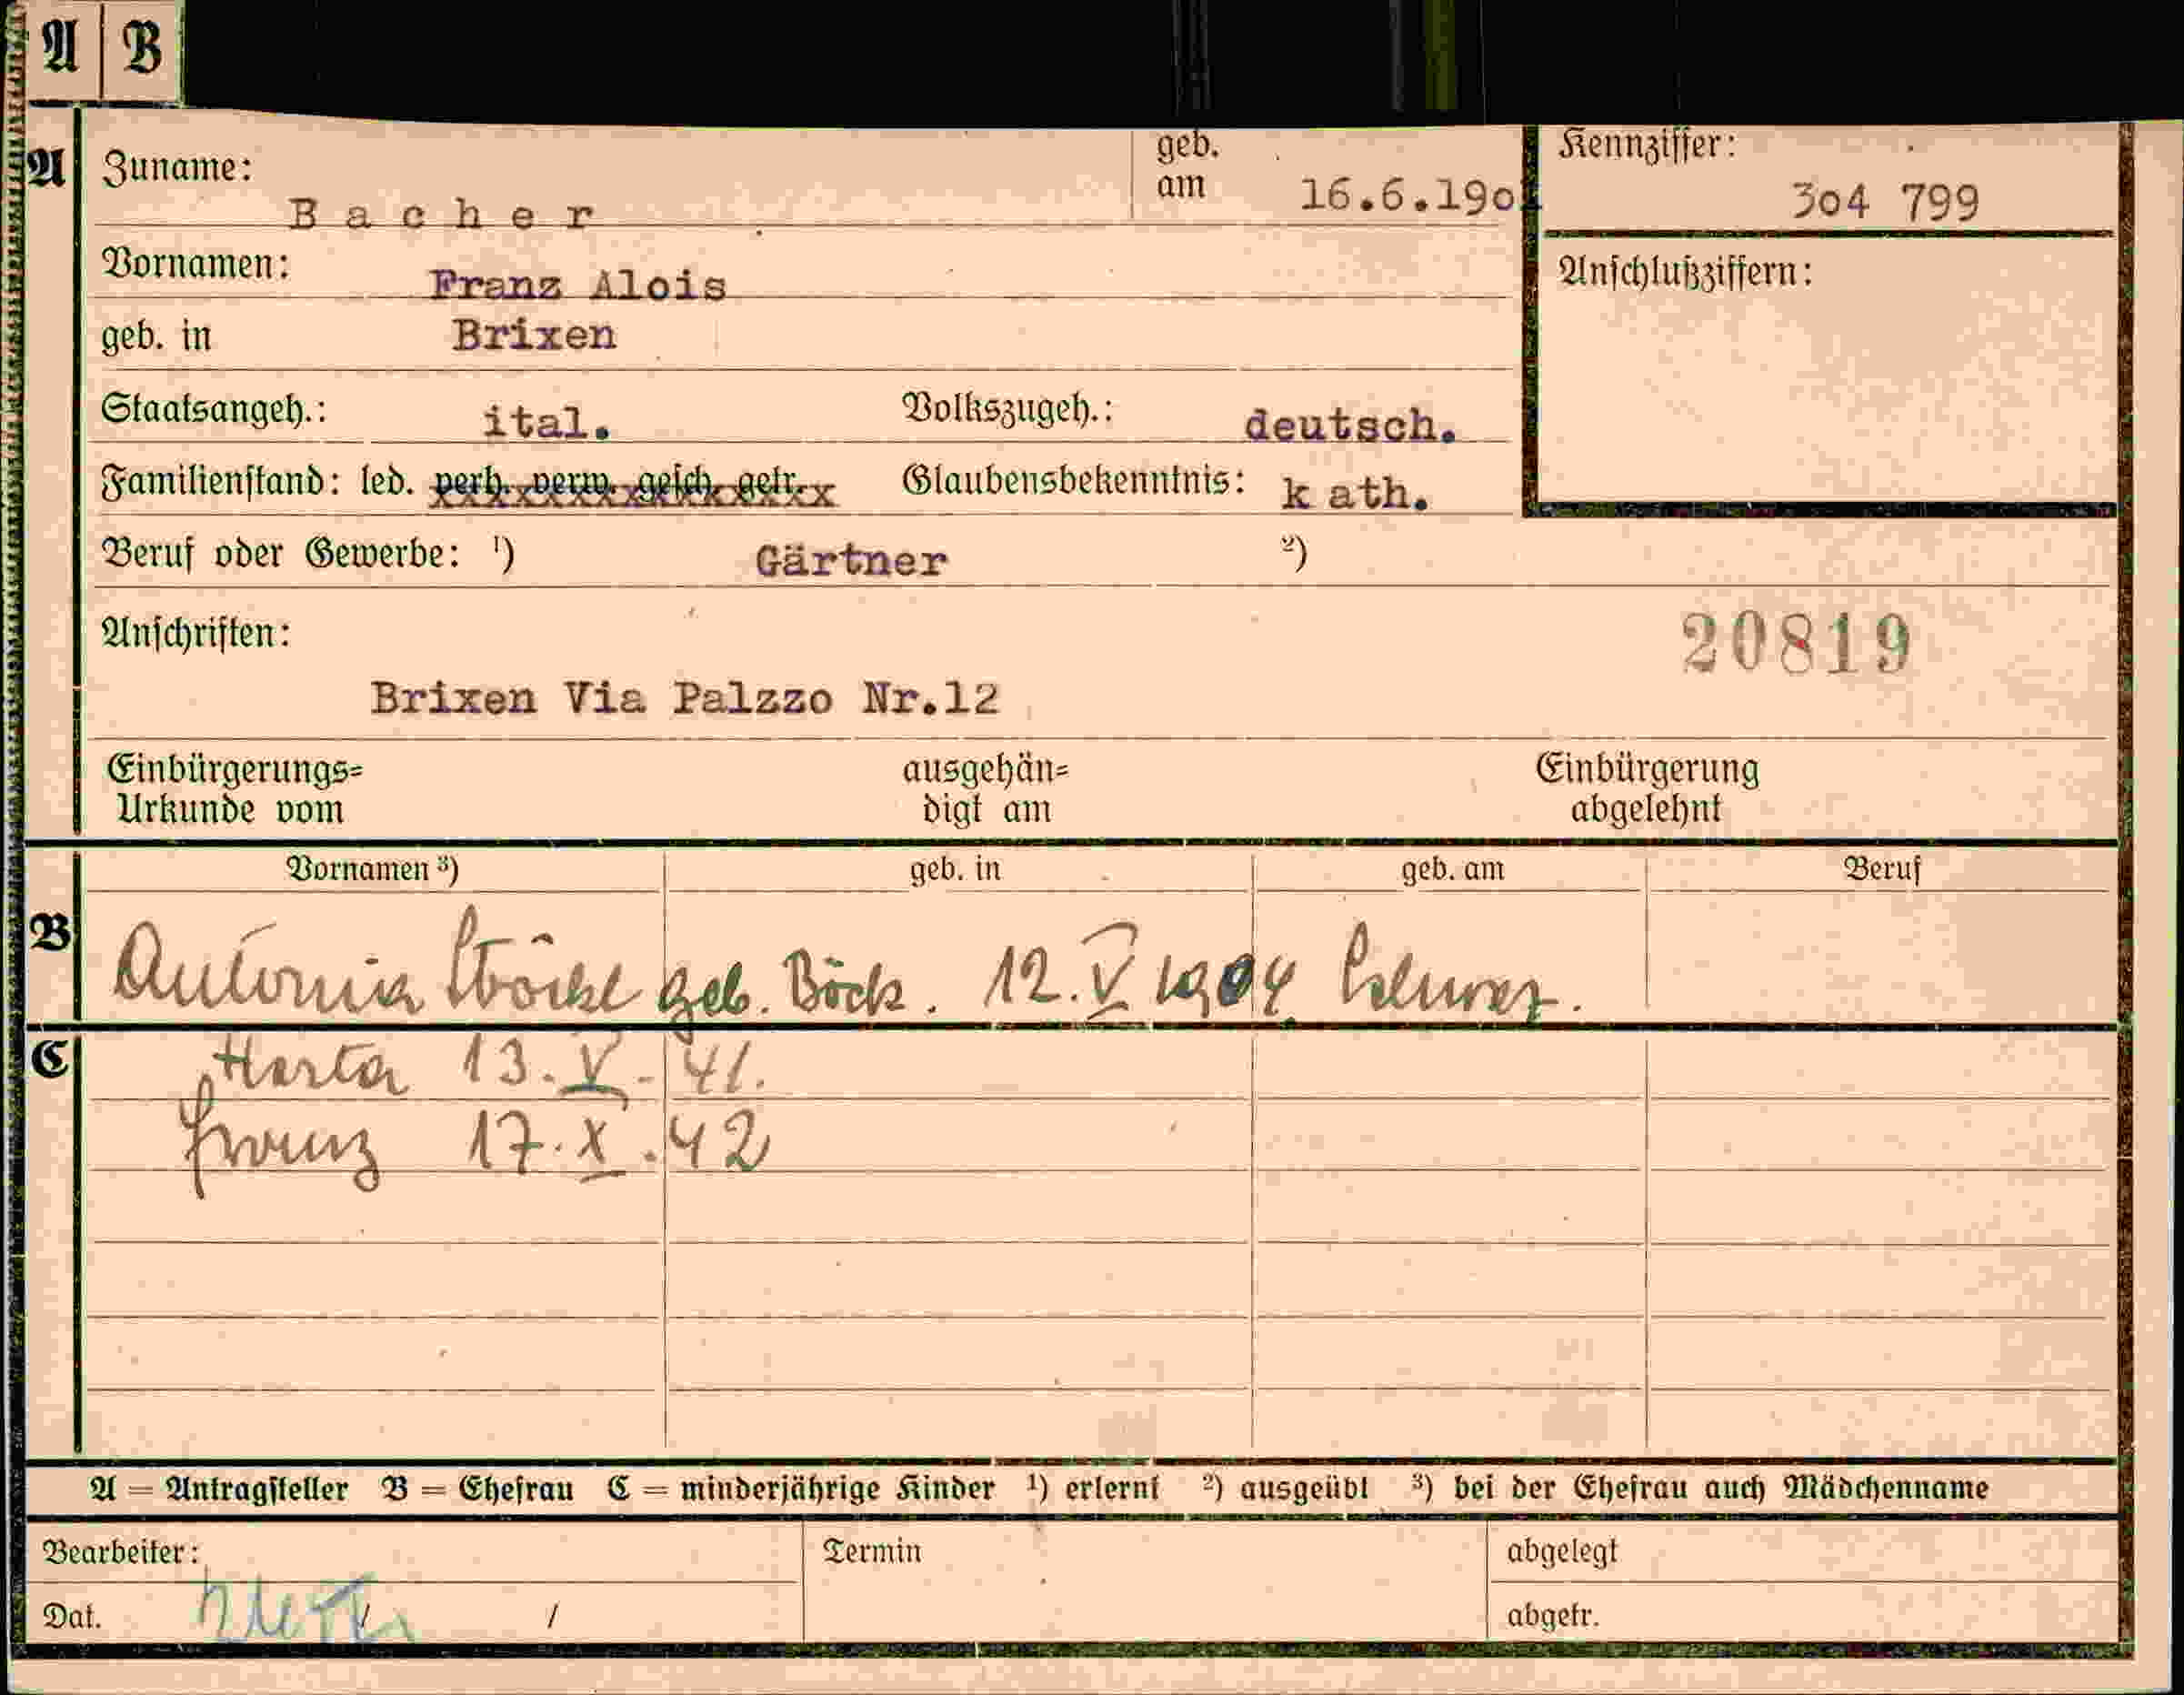 A B
A Zuname: geb. am Kennziffer:
B a c h e r 16.6.190 3o4 799
Vornamen: Franz Alois Anschlußziffern:
geb. in Brixen
Staatsangeh.: ital. Volkszugeh.: deutsch.
Familienstand: led. verh. verw. gesch. getr. Glaubensbekenntnis: k ath.
Beruf oder Gewerbe: ¹) Gärtner ²)
Anschriften: 20819
Brixen Via Palzzo Nr.12
Einbürgerungs= ausgehän= Einbürgerung
Urkunde vom digt am abgelehnt
Vornamen ³) geb. in geb. am Beruf
B Antonia Stöckl geb. Böck. 12. V 1904 Schwaz.
C Herta 13. V. 41.
Franz 17. X. 42
A = Antragsteller B = Ehefrau C = minderjährige Kinder ¹) erlernt ²) ausgeübt ³) bei der Ehefrau auch Mädchenname
Bearbeiter: Termin abgelegt
Dat. / / abgetr.